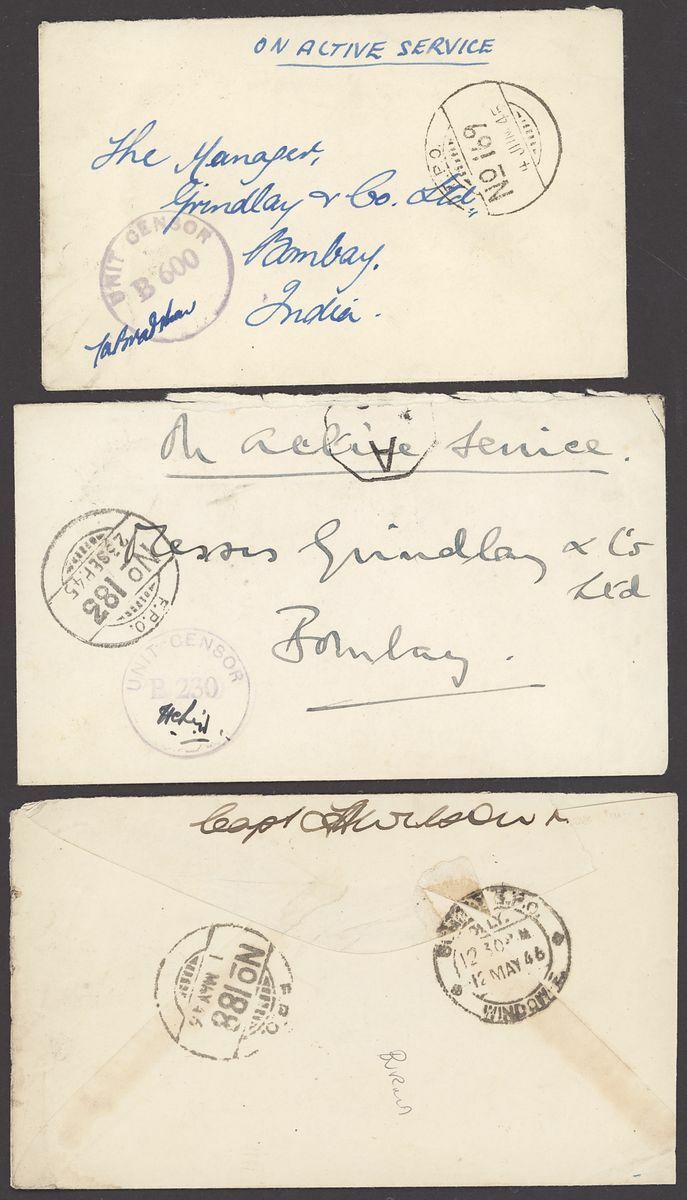 ON ACTIVE SERVICE
F.P.O.
NO 169
4 JUN 45
The Manager,
Grindlay & Co. Ltd,
Bombay,
India.
UNIT CENSOR
B 600
On Active Service.
A
F.P.O.
NO 183
23 SEP 45
Messrs Grindlay & Co
Ltd
Bombay.
UNIT CENSOR
B 230
Capt
F.P.O.
NO 188
1 MAY 46
G.P.O.
DLY.
12 30 PM
12 MAY 46
WINDOW